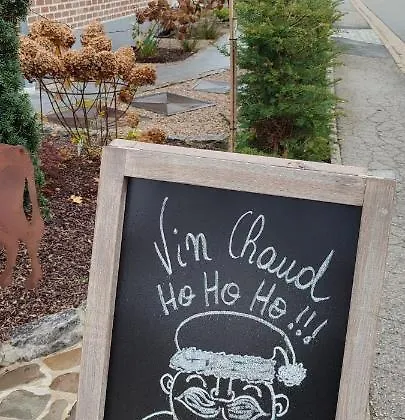 Vin Chaud
Ho Ho Ho!!!